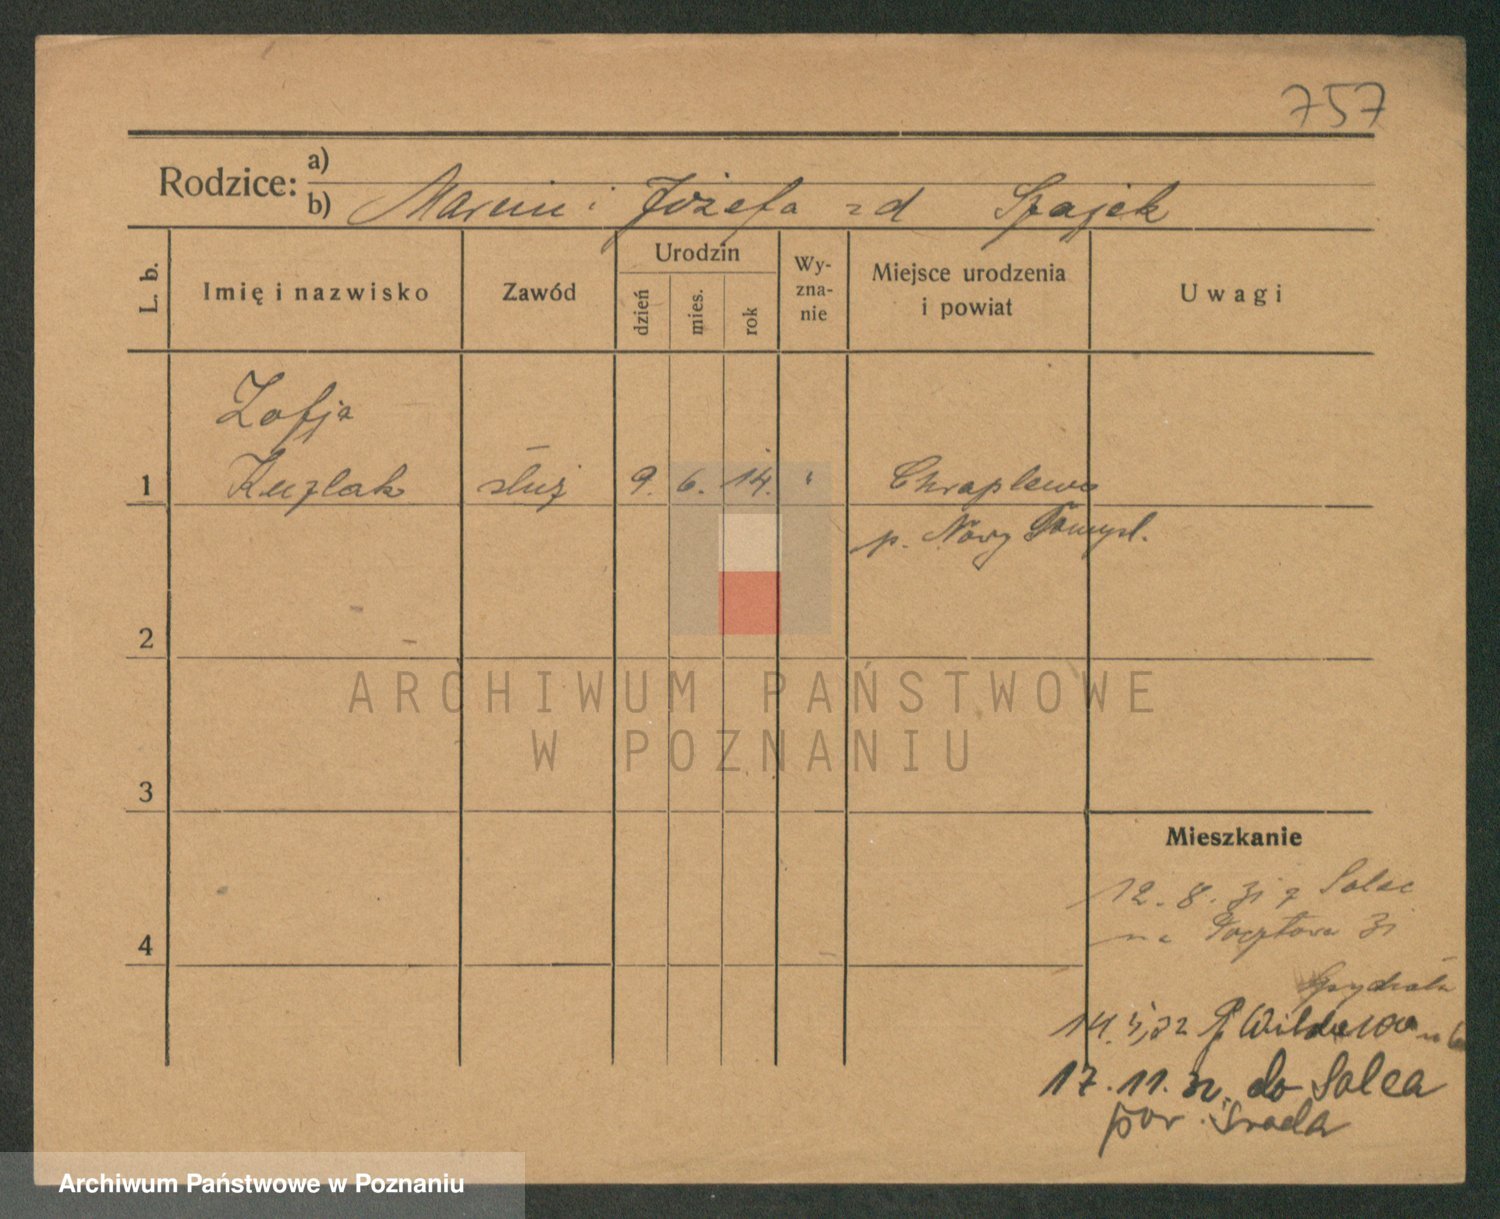 757
Rodzice: a)
b) Marcin i Józefa zd Szajek
L. b.
Imię i nazwisko
Zawód
Urodzin
dzień
mies.
rok
Wy-
zna-
nie
Miejsce urodzenia
i powiat
Uwagi
Zofja
1 Kuzlak służ 9. 6. 14. " Chraplewo
p. Nowy Tomysl.
2
3
4
Mieszkanie
12. 8. 31 z Solec
na Pocztowa 31
14. 5. 32 Wilde
17. 11. 32. do Solca
pow. Środa
ARCHIWUM PAŃSTWOWE
W POZNANIU
Archiwum Państwowe w Poznaniu